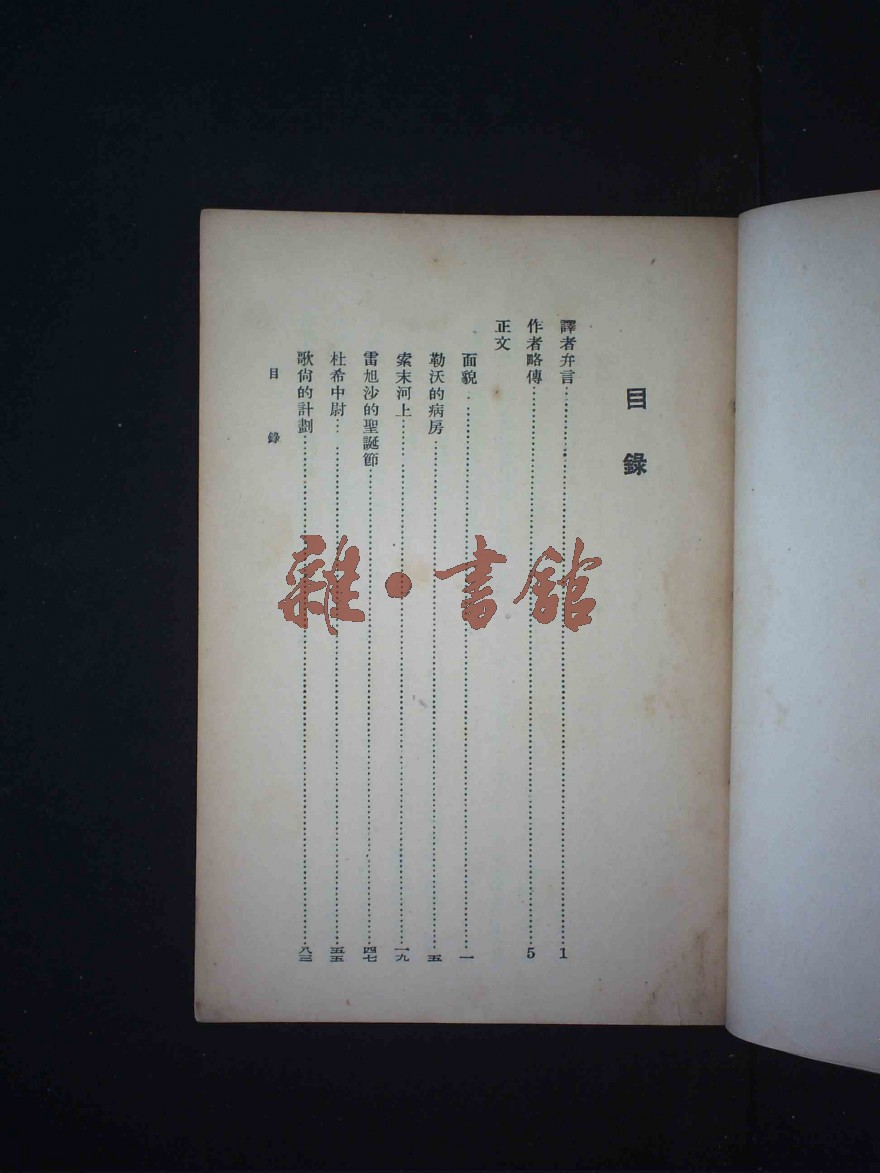 目錄
譯者弁言……1
作者略傳……5
正文
面貌……一
勒沃的病房……五
索末河上……一九
雷旭沙的聖誕節……四七
杜希中尉……五五
歌尙的計劃……八三
目錄
雜·書館